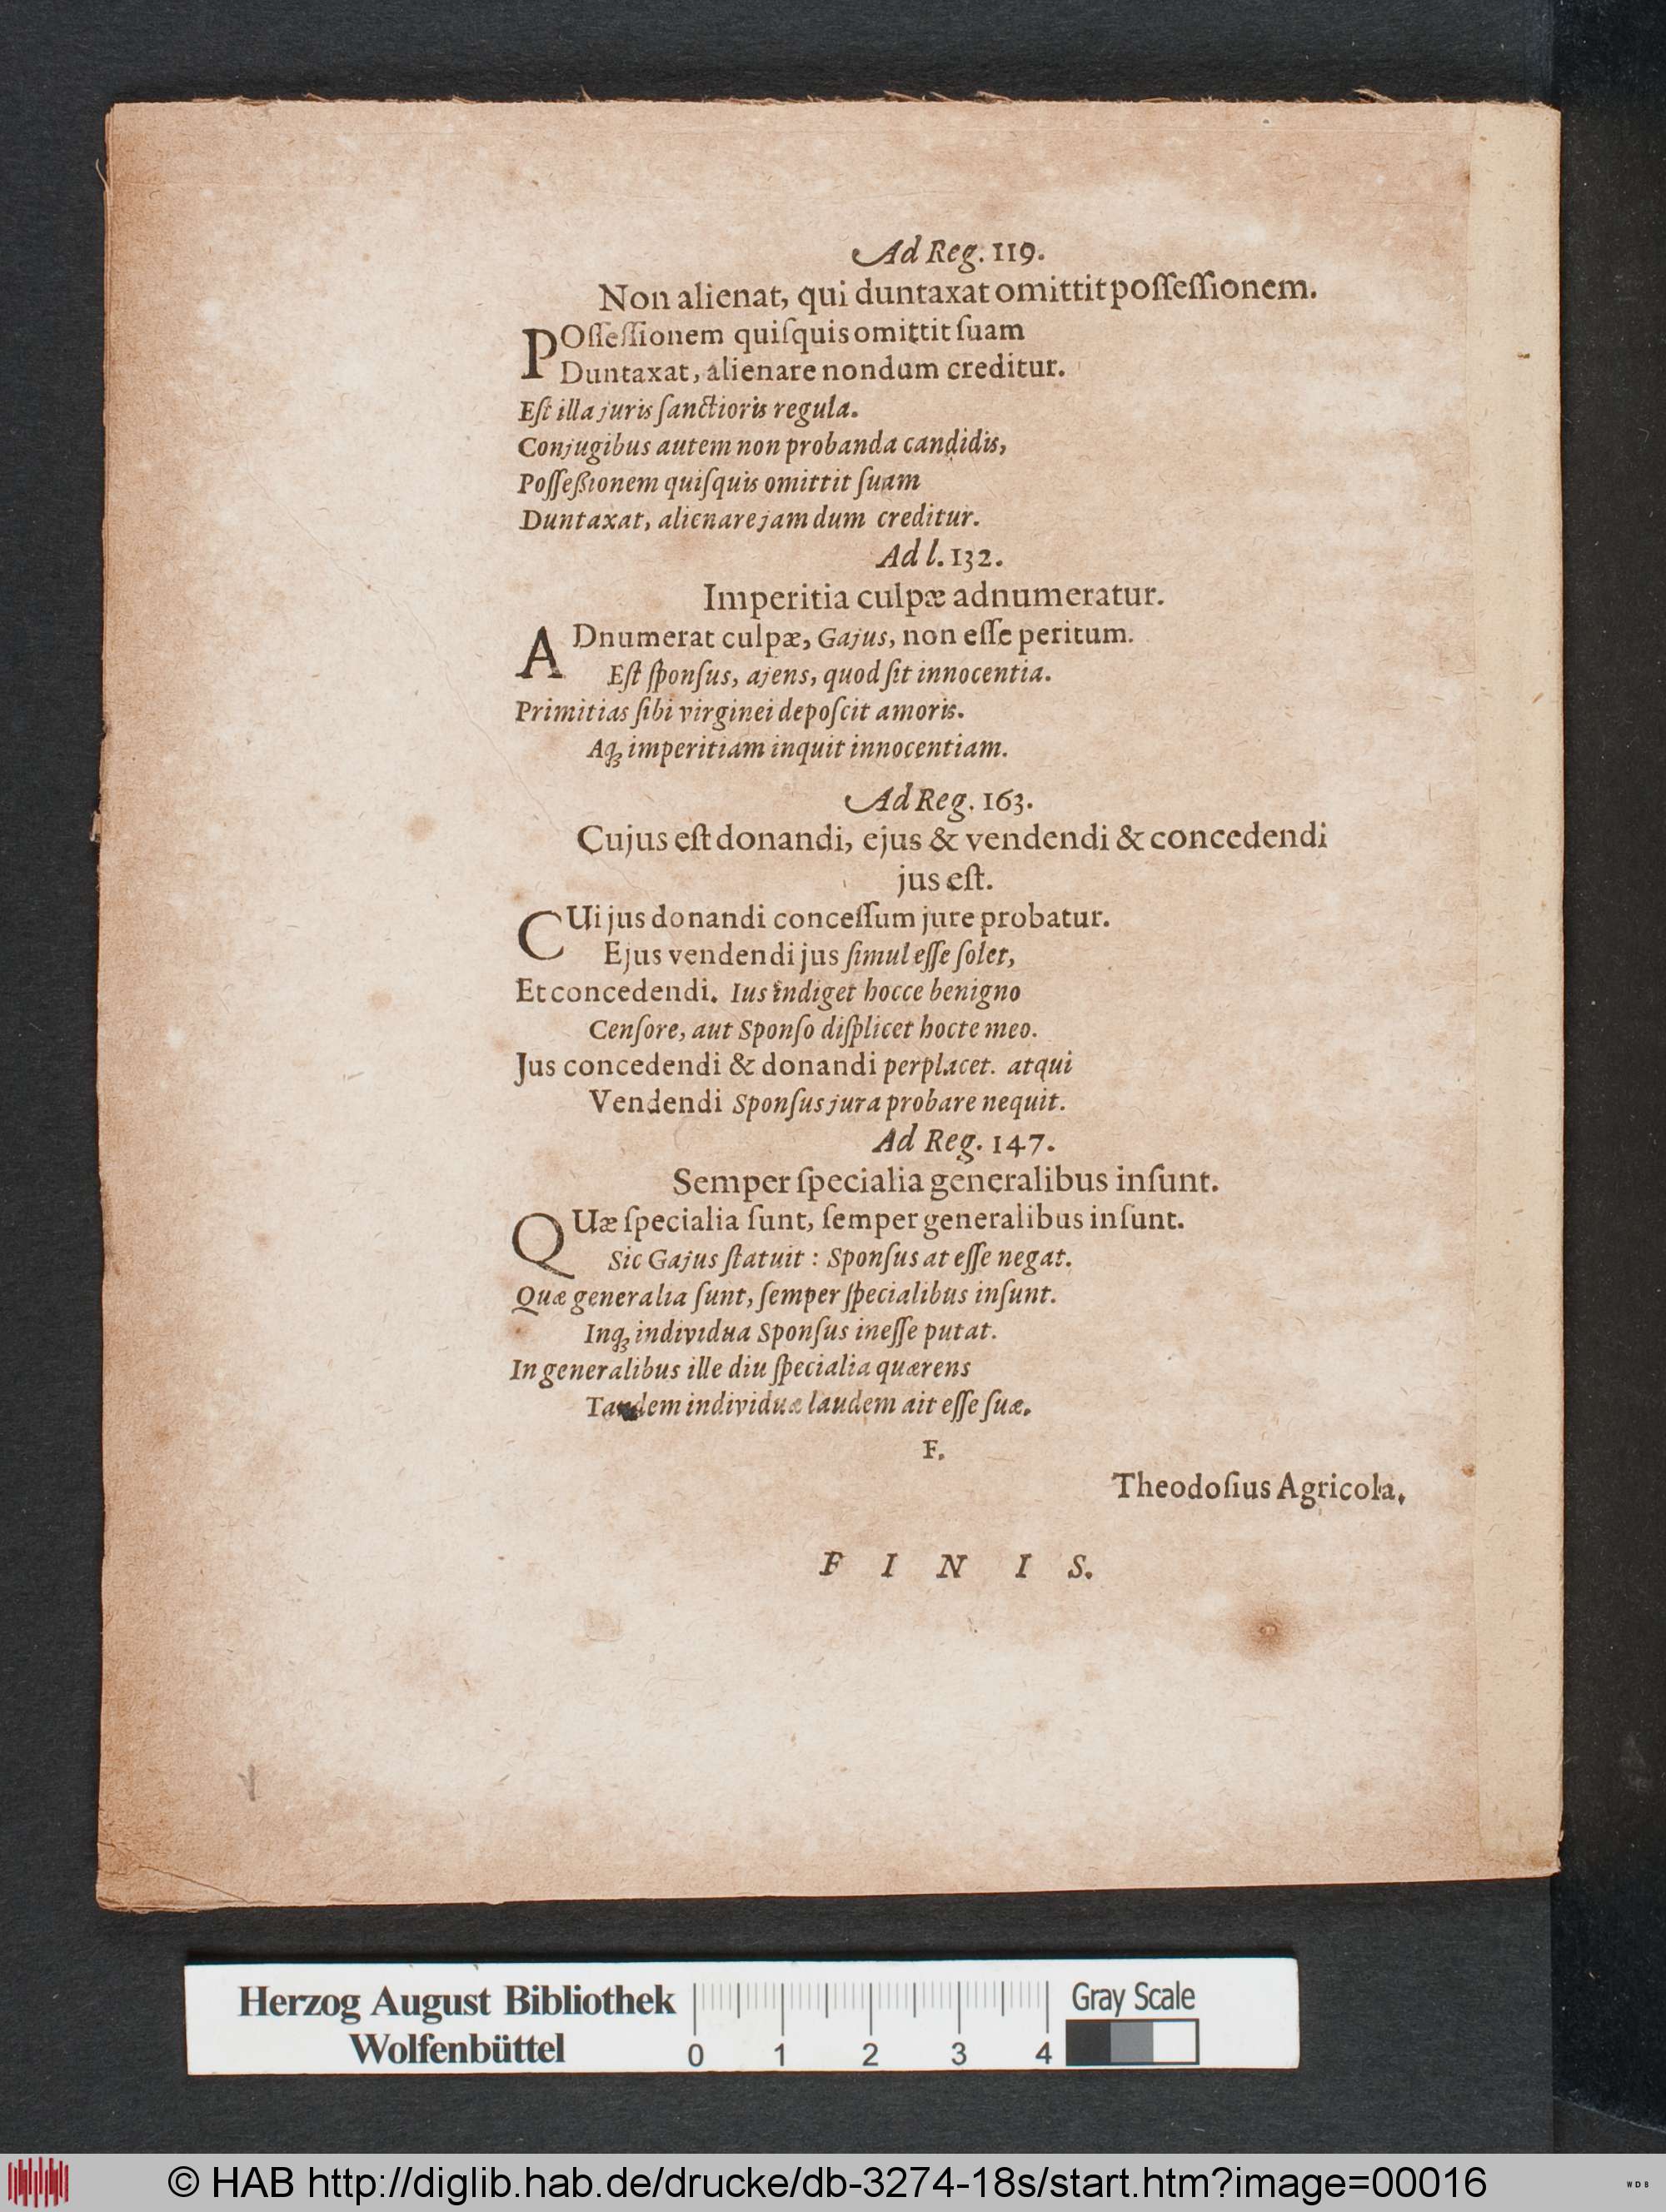 Ad Reg. 119.
Non alienat, qui duntaxat omittit poſſeſſionem.
POſſeſſionem quiſquis omittit ſuam
Duntaxat, alienare nondum creditur.
Eſt illa juris ſanctioris regula.
Conjugibus autem non probanda candidis,
Poſſeßionem quiſquis omittit ſuam
Duntaxat, alienare jam dum creditur.
Ad l. 132.
Imperitia culpæ adnumeratur.
ADnumerat culpæ, Gajus, non eſſe peritum.
Eſt ſponſus, ajens, quod ſit innocentia.
Primitias ſibi virginei depoſcit amoris.
Aq́ꝫ imperitiam inquit innocentiam.
Ad Reg. 163.
Cujus eſt donandi, ejus & vendendi & concedendi
jus eſt.
CUi jus donandi conceſſum jure probatur.
Ejus vendendi jus ſimul eſſe ſolet,
Et concedendi. Ius indiget hocce benigno
Cenſore, aut Sponſo diſplicet hocte meo.
Jus concedendi & donandi perplacet. atqui
Vendendi Sponſus jura probare nequit.
Ad Reg. 147.
Semper ſpecialia generalibus inſunt.
QUæ ſpecialia ſunt, ſemper generalibus inſunt.
Sic Gajus ſtatuit : Sponſus at eſſe negat.
Quæ generalia ſunt, ſemper ſpecialibus inſunt.
Inqꝫ individua Sponſus ineſſe putat.
In generalibus ille diu ſpecialia quærens
Tandem individuæ laudem ait eſſe ſuæ.
F.
Theodoſius Agricola.
F I N I S.
Herzog August Bibliothek
Wolfenbüttel
0 1 2 3 4
Gray Scale
© HAB http://diglib.hab.de/drucke/db-3274-18s/start.htm?image=00016
WDB